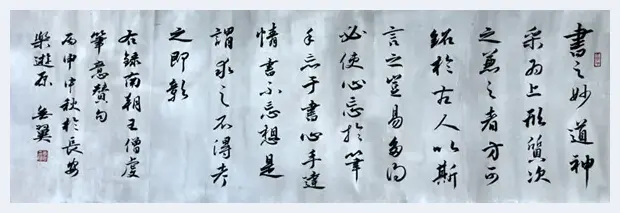 書之妙道神
采为上形質次
之兼之者方可
紹於古人以斯
言之豈易多得
必使心忘於筆
手忘于書心手達
情書不忘想是
謂求之不得考
之即彰
右錄南朝王僧虔
筆意贊句
丙申中秋於長安
樂遊原